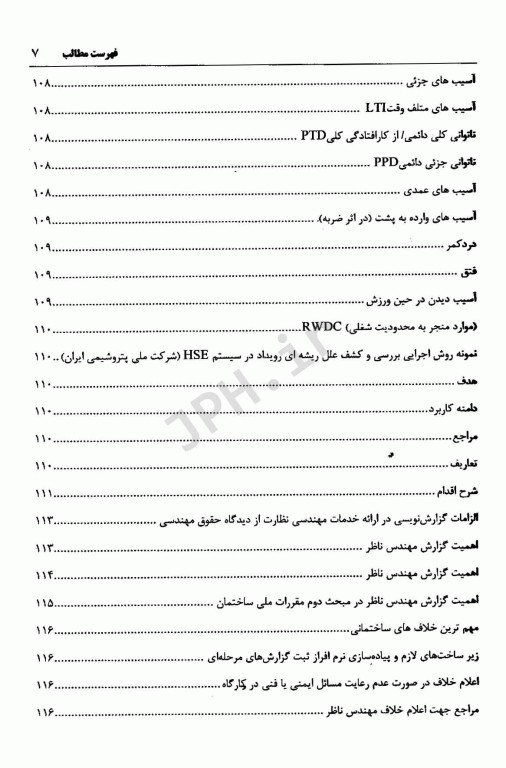 فهرست مطالب ۷
آسیب های جزئی ........۱۰۸
آسیب های متلف وقتLTI ........۱۰۸
ناتوانی کلی دائمی/ از کارافتادگی کلیPTD ........۱۰۸
ناتوانی جزئی دائمیPPD ........۱۰۸
آسیب های عمدی ........۱۰۸
آسیب های وارده به پشت (در اثر ضربه) ........۱۰۹
دردکمر ........۱۰۹
فتق ........۱۰۹
آسیب دیدن در حین ورزش ........۱۰۹
(موارد منجر به محدودیت شغلی) RWDC ........۱۱۰
نمونه روش اجرایی بررسی و کشف علل ریشه ای رویداد در سیستم HSE (شرکت ملی پتروشیمی ایران) ..۱۱۰
هدف ........۱۱۰
دامنه کاربرد ........۱۱۰
مراجع ........۱۱۰
تعاریف ........۱۱۰
شرح اقدام ........۱۱۱
الزامات گزارش‌نویسی در ارائه خدمات مهندسی نظارت از دیدگاه حقوق مهندسی ........۱۱۳
اهمیت گزارش مهندس ناظر ........۱۱۳
اهمیت گزارش مهندس ناظر ........۱۱۴
اهمیت گزارش مهندس ناظر در مبحث دوم مقررات ملی ساختمان ........۱۱۵
مهم ترین خلاف های ساختمانی ........۱۱۶
زیر ساخت‌های لازم و پیاده‌سازی نرم افراز ثبت گزارش‌های مرحله‌ای ........۱۱۶
اعلام خلاف در صورت عدم رعایت مسائل ایمنی یا فنی در کارگاه ........۱۱۶
مراجع جهت اعلام خلاف مهندس ناظر ........۱۱۶
JPH.ir